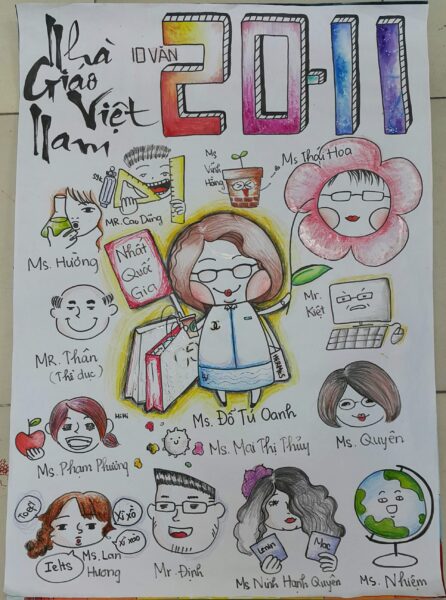 Nhà
Giáo
Việt
Nam
10 VĂN
20-11
MR. Cao Dũng
Ms
Vĩnh
Hồng
Ms Thái Hoa
Ms. Hường
Nhất
Quốc
Gia
Mr.
Kiệt
MR. Thân
(Thể dục)
HERMES
Ms. Đỗ Tú Oanh
Ms. Quyên
HiHi
Ms. Phạm Phường
Ms. Mai Thị Thủy
Toefl
Xí xố
Xí xào
Ielts
Ms. Lan
Hương
Mr Định
Lenin
Mac
Ms Ninh Hạnh Quyên
Ms. Nhiệm